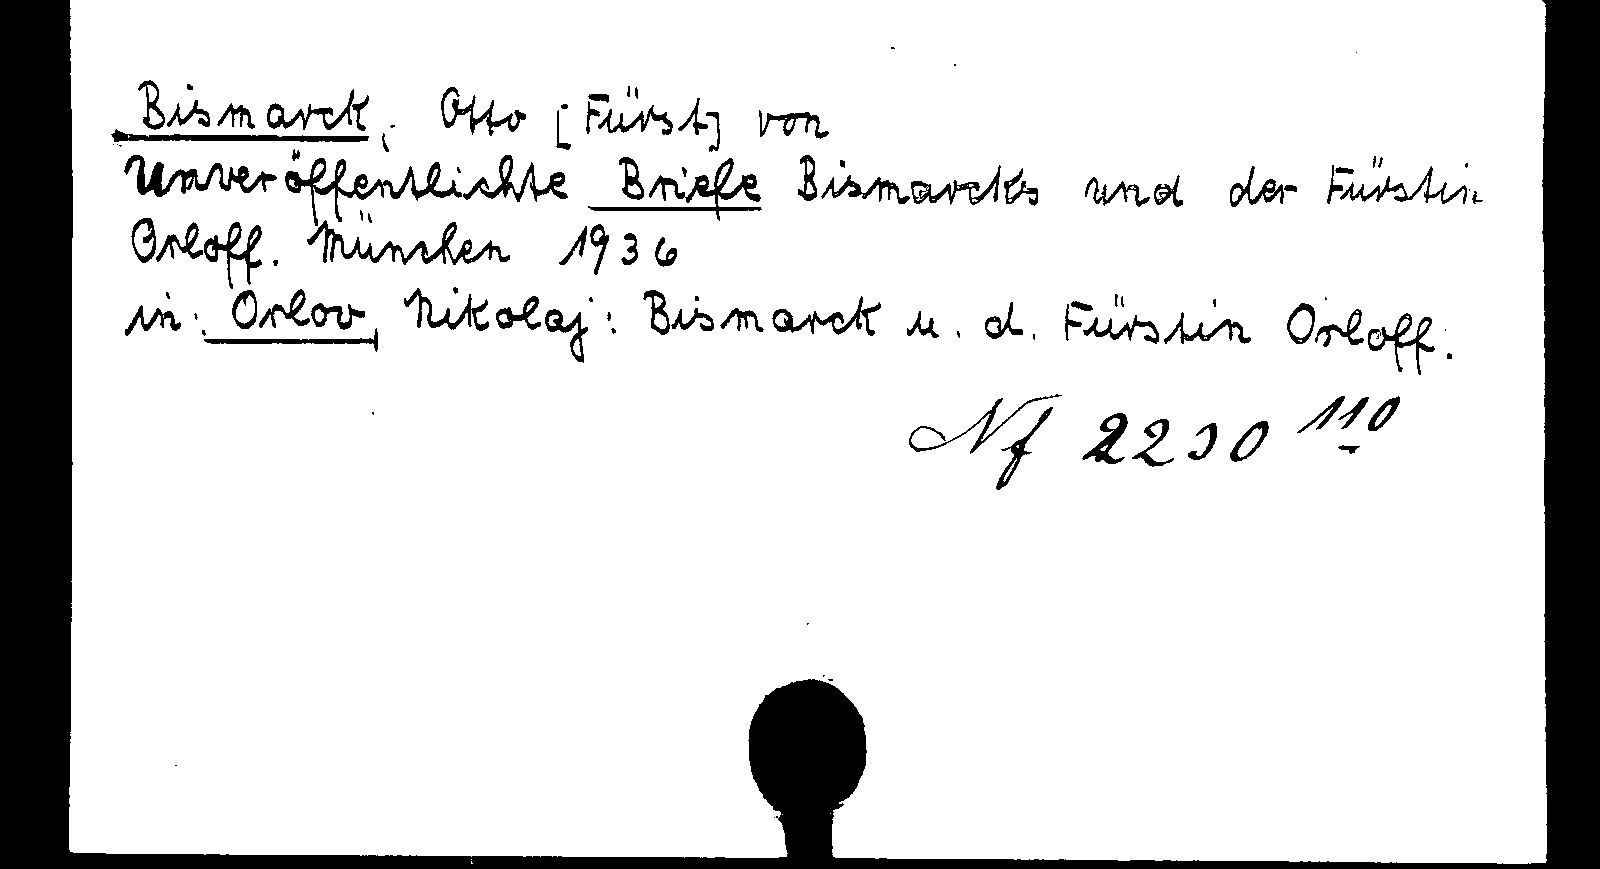 Bismarck, Otto [Fürst] von
Unveröffentlichte Briefe Bismarcks und der Fürstin
Orloff. München 1936
in: Orlov, Nikolaj: Bismarck u. d. Fürstin Orloff.
Nf 2230 110